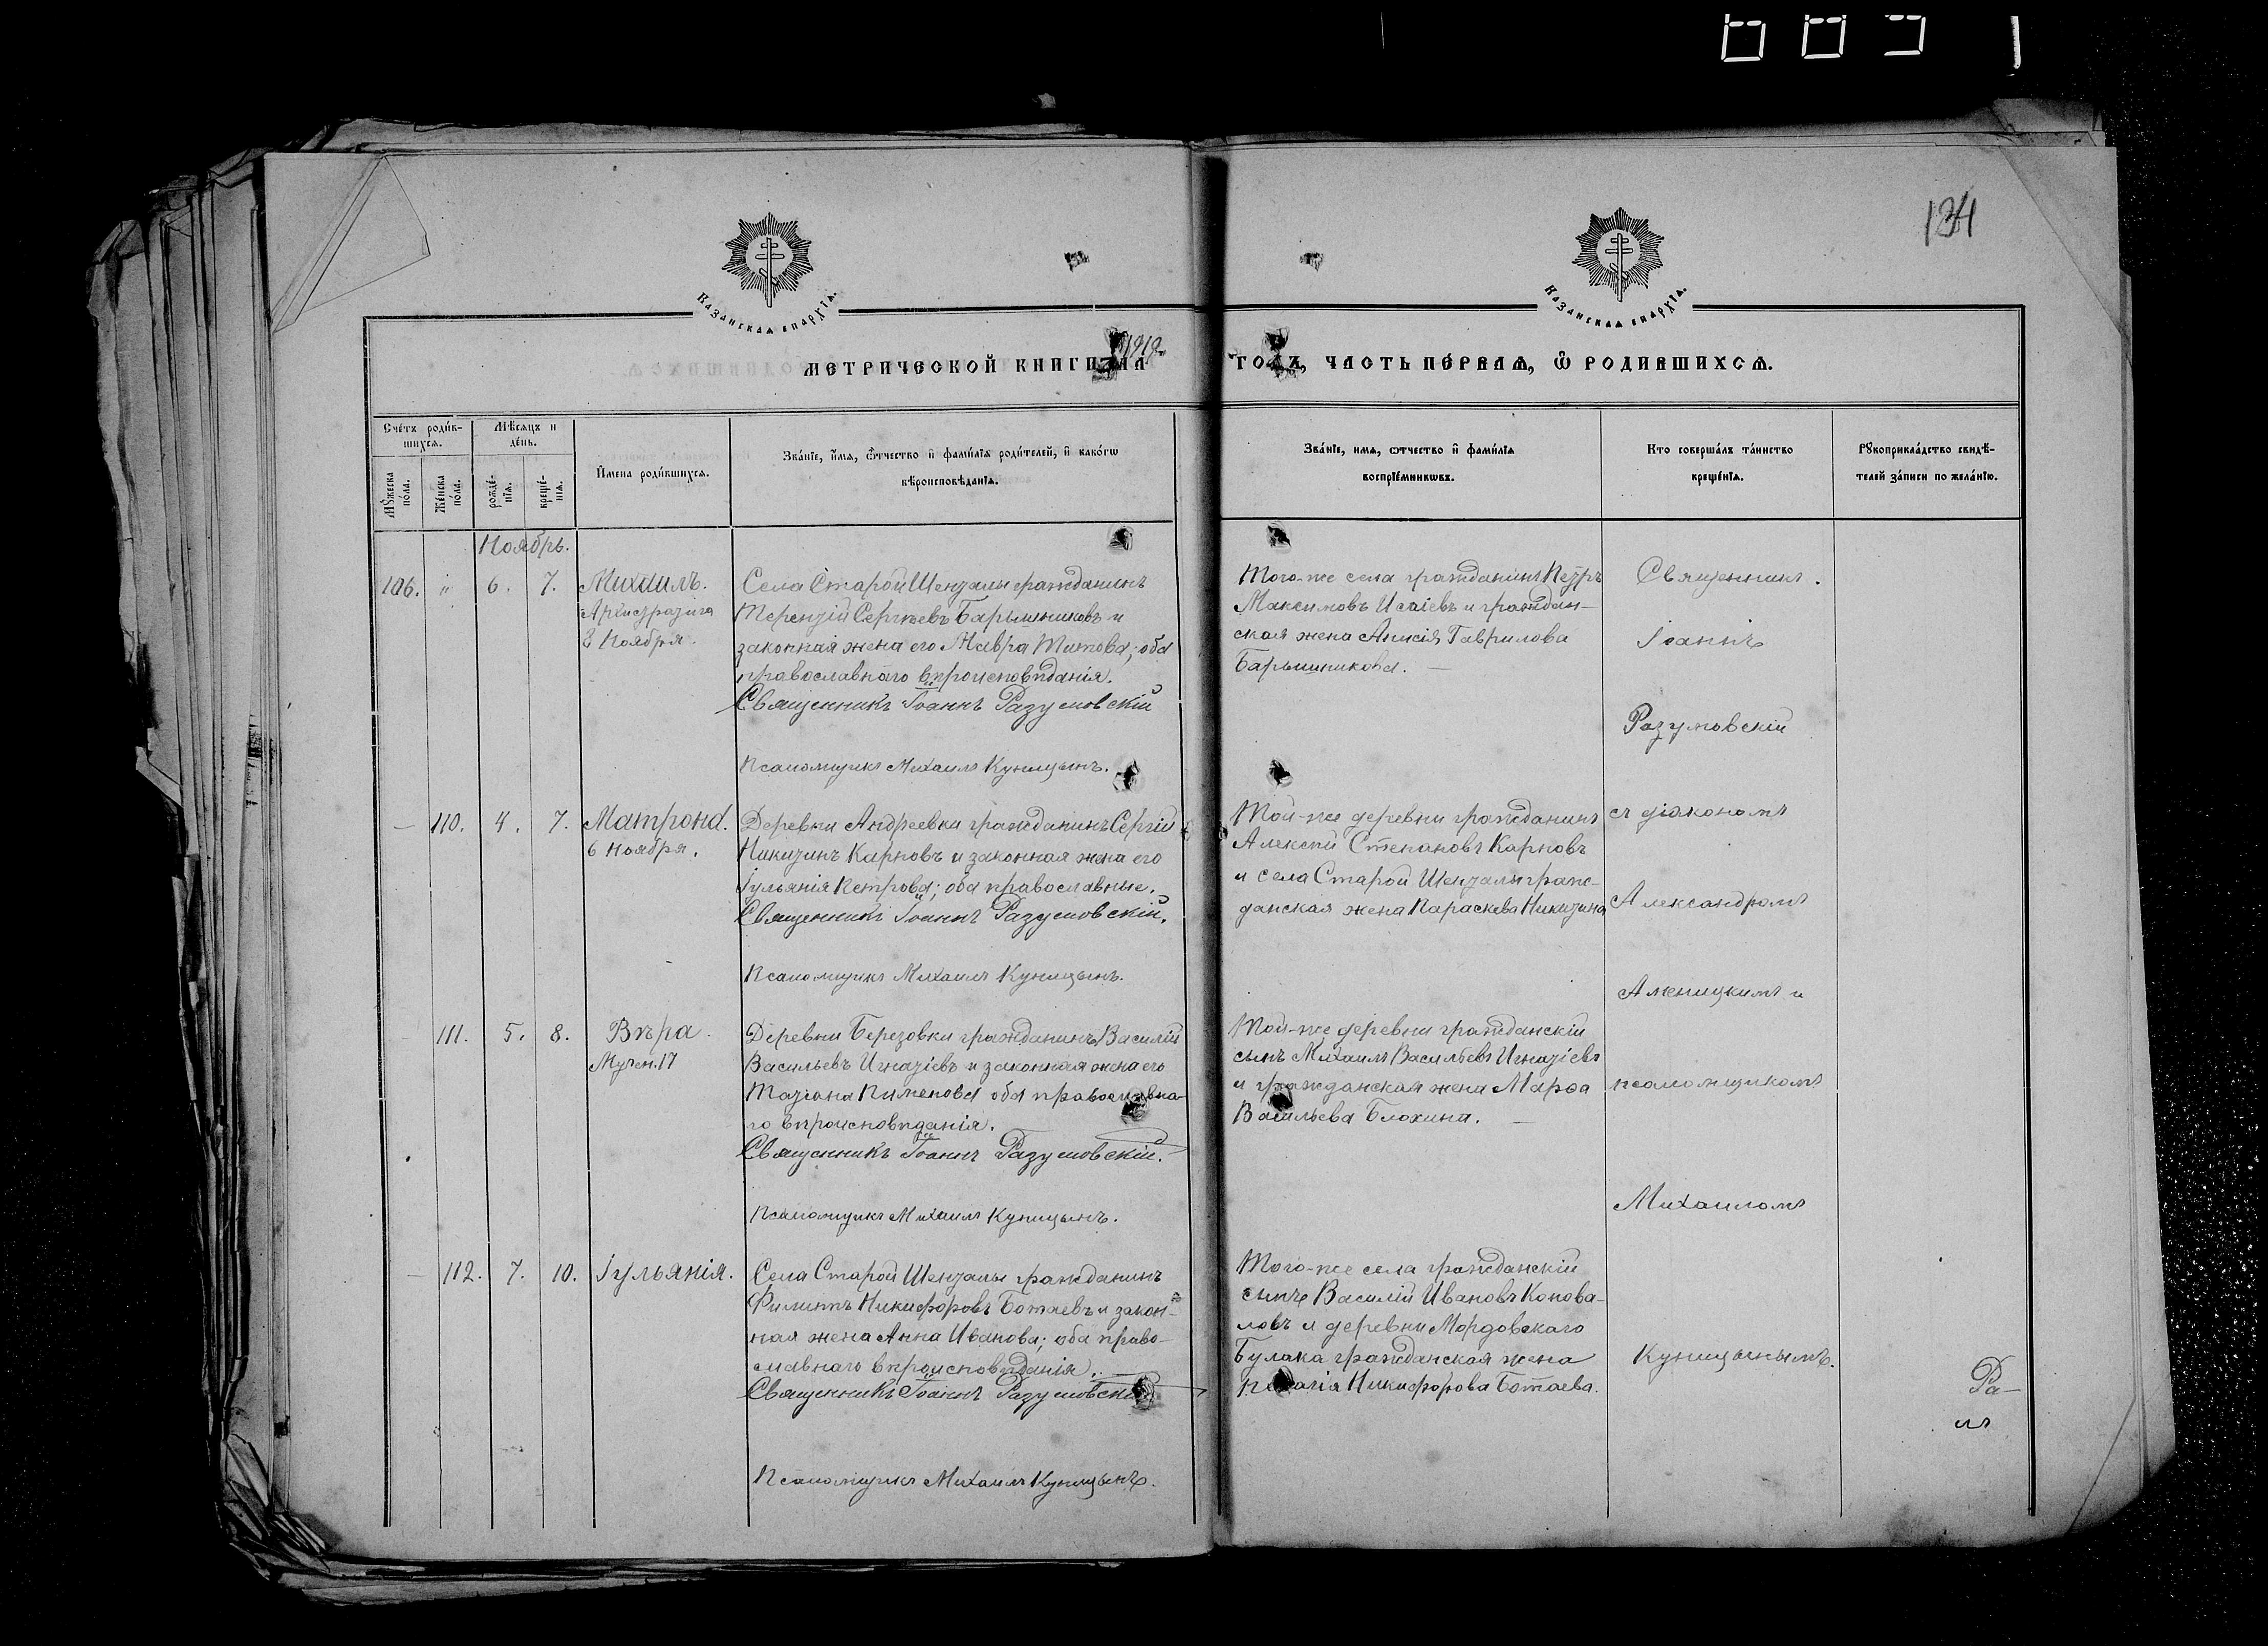 134
КАЗАНСКАЯ ЕПАРХІЯ.
КАЗАНСКАЯ ЕПАРХІЯ.
МЕТРИЧЕСКОЙ КНИГИ НА 1918 ГОДЪ, ЧАСТЬ ПЕ́РВАЯ, Ѡ҆ РОДИВШИХСЯ.
Сче́тъ роди́в-
шихся.
Мѣ́сяцъ и
де́нь.
Мꙋ́жеска
по́ла.
Же́нска
по́ла.
рожде́-
нїя.
креще́-
нїя.
И҆мена роди́вшихся.
Зва́нїе, и҆́мя, ѻ҆́тчество и҆ фамѝлїѧ роди́телей, и҆ како́гѡ
вѣроисповѣ́данїѧ.
Зва́нїе, имя, ѻтчество и҆ фамѝлїѧ
воспрїе́мникѡвъ.
Кто соверша́лъ та́инство
креще́нїѧ.
Рꙋкоприкла́дство свидѣ́-
телей за́писи по жела́нїю.
Ноябрь.
106. " 6. 7. Михаилъ.
Архистратига
8 Ноября.
Села Старой Шенталы гражданинъ
Терентій Сергѣевъ Барышниковъ и
законная жена его Мавра Титова; оба
православнаго вѣроисповѣданія.
Священникъ Іоаннъ Разумовскій
Псаломщикъ Михаилъ Куницынъ.
Того-же села гражданинъ Петръ
Максимовъ Исаіевъ и граждан-
ская жена Анисія Гаврилова
Барышникова. —
— 110. 4. 7. Матрона.
6 Ноября.
Деревни Андреевки гражданинъ Сергій
Никитинъ Карповъ и законная жена его
Іульянія Петрова; оба православные.
Священникъ Іоаннъ Разумовскій.
Псаломщикъ Михаилъ Куницынъ.
Той-же деревни гражданинъ
Алексѣй Степановъ Карповъ
и села Старой Шенталы граж-
данская жена Параскева Никитина
111. 5. 8. Вѣра.
Мучен. 17
Деревни Березовки гражданинъ Василій
Васильевъ Игнатіевъ и законная жена его
Татіана Пименова оба православна-
го вѣроисповѣданія.
Священникъ Іоаннъ Разумовскій.
Псаломщикъ Михаилъ Куницынъ.
Той-же деревни гражданскій
сынъ Михаилъ Васильевъ Игнатіевъ
и гражданская жена Марѳа
Васильева Блохина. —
— 112. 7. 10. Іульянія.
Села Старой Шенталы гражданинъ
Филиппъ Никифоровъ Ботаевъ и закон-
ная жена Анна Иванова; оба право-
славнаго вѣроисповѣданія.
Священникъ Іоаннъ Разумовскій
Псаломщикъ Михаилъ Куницынъ.
Того-же села гражданскій
сынъ Василій Ивановъ Конова-
ловъ и деревни Мордовскаго
Булака гражданская жена
Никифорова Ботаева.
Священникъ.
Іоаннъ
Разумовскій
съ діакономъ
Александромъ
Аменицкимъ и
псаломщикомъ
Михаиломъ
Куницынымъ.
Ра-